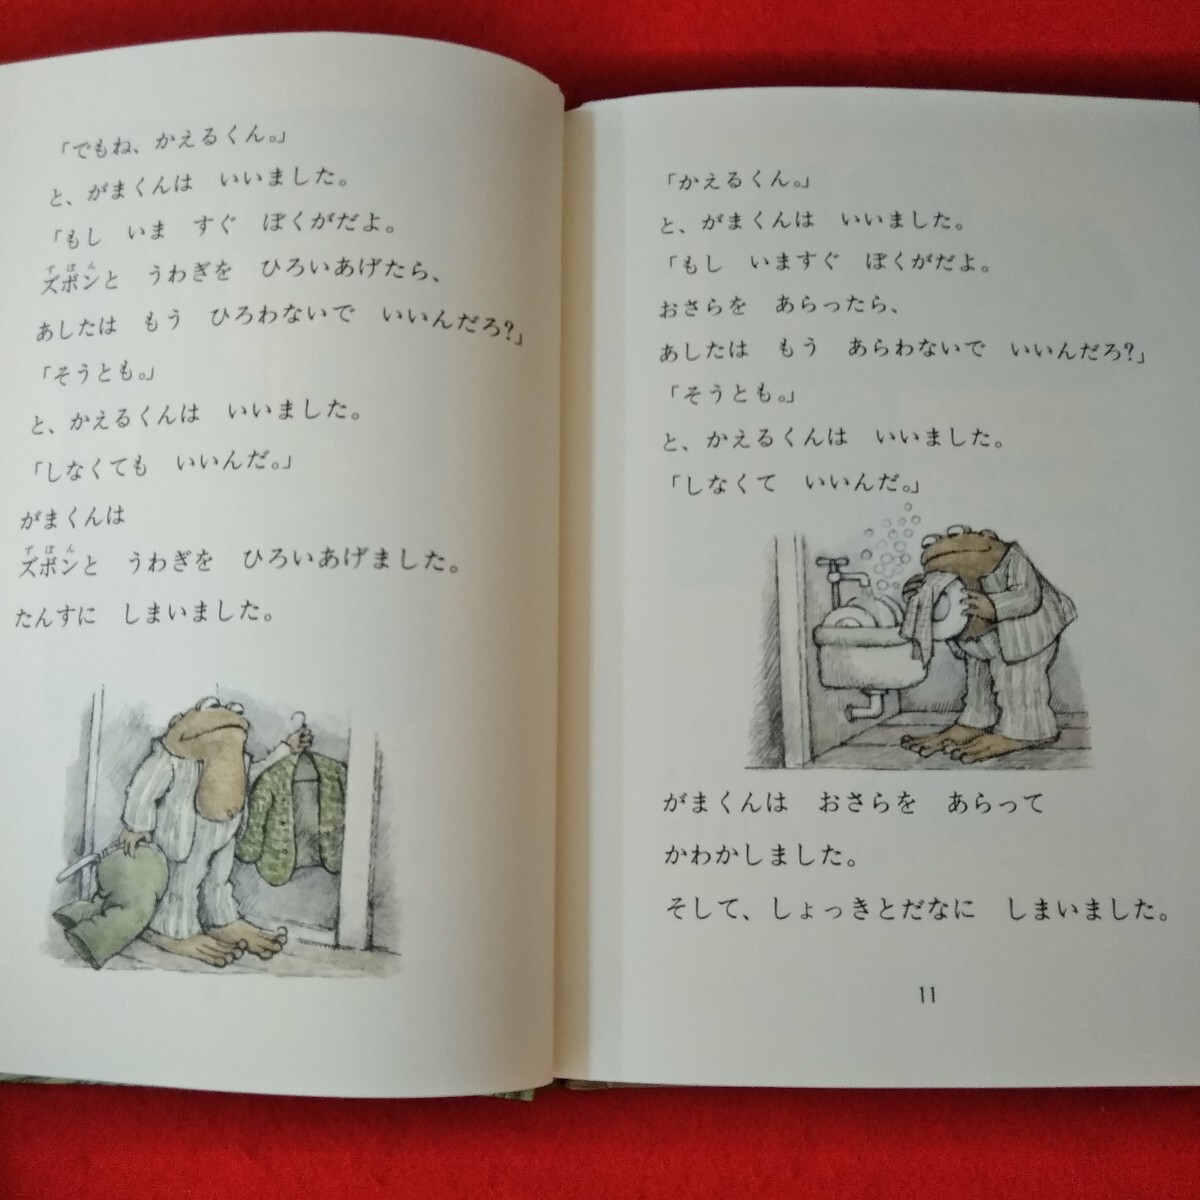 「でもね、かえるくん。」
と、がまくんは　いいました。
「もし　いま　すぐ　ぼくがだよ。
ずぼん
ズボンと　うわぎを　ひろいあげたら、
あしたは　もう　ひろわないで　いいんだろ?」
「そうとも。」
と、かえるくんは　いいました。
「しなくても　いいんだ。」
がまくんは
ずぼん
ズボンと　うわぎを　ひろいあげました。
たんすに　しまいました。
「かえるくん。」
と、がまくんは　いいました。
「もし　いますぐ　ぼくがだよ。
おさらを　あらったら、
あしたは　もう　あらわないで　いいんだろ?」
「そうとも。」
と、かえるくんは　いいました。
「しなくて　いいんだ。」
がまくんは　おさらを　あらって
かわかしました。
そして、しょっきとだなに　しまいました。
11